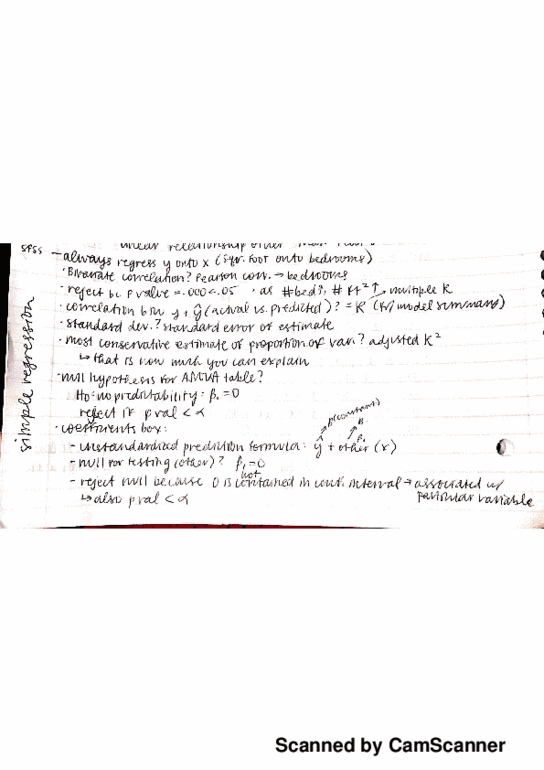 SPSS
linear relationship other than
- always regress y onto x (sqr. foot onto bedrooms)
· Bivariate correlation? Pearson corr. → bedrooms
· reject bc p value = .000 < .05 · as # bed ↑, # ft² ↑
multiple R
· correlation b/w y + ŷ (actual vs. predicted)? = R (in model summary)
· standard dev.? standard error of estimate
· most conservative estimate of proportion of var.? adjusted R²
↳ that is how much you can explain
· null hypothesis for ANOVA table?
H₀: no predictability: β₁ = 0
reject if p val < α
· coefficients box:
B (constant)
B
β₁
- unstandardized prediction formula: y + other (x)
- null for testing (other)? β₁ = 0
- reject null because 0 is not contained in conf. interval → associated w/ particular variable
↳ also p val < α
simple regression
Scanned by CamScanner